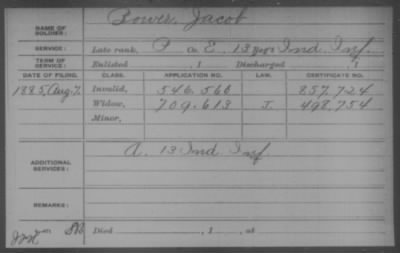 Bower, Jacob
NAME OF SOLDIER:
SERVICE: Late rank, P Co. E, 13 Reg't Ind. Inf.
TERM OF SERVICE: Enlisted , 1 Discharged , 1
DATE OF FILING. CLASS. APPLICATION NO. LAW. CERTIFICATE NO.
1885, Aug. 7. Invalid, 546.560 857.724
Widow, 709.613 J. 498.754
Minor,
ADDITIONAL SERVICES: A. 13 Ind. Inf.
REMARKS:
Died , 1 , at